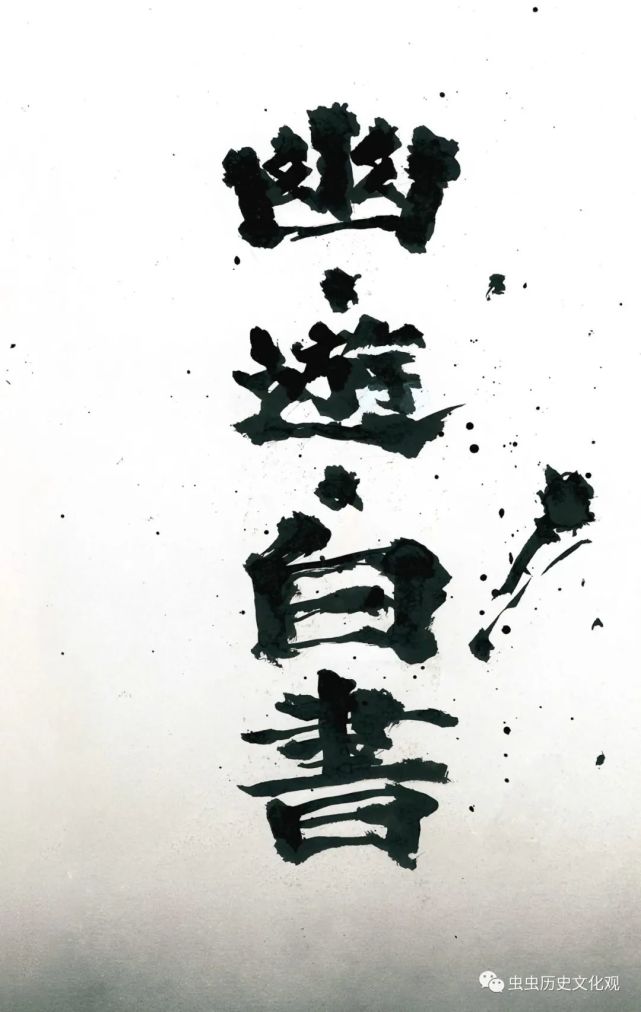 幽・遊・白書
虫虫历史文化观